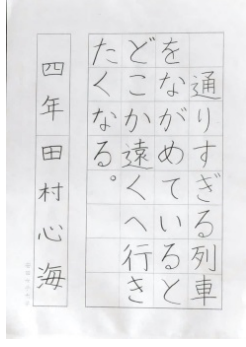 通りすぎる列車
をながめていると
どこか遠くへ行き
たくなる。
四年 田村心海